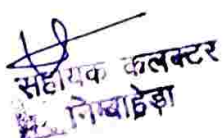 सहायक कलक्टर
निम्बाहेड़ा